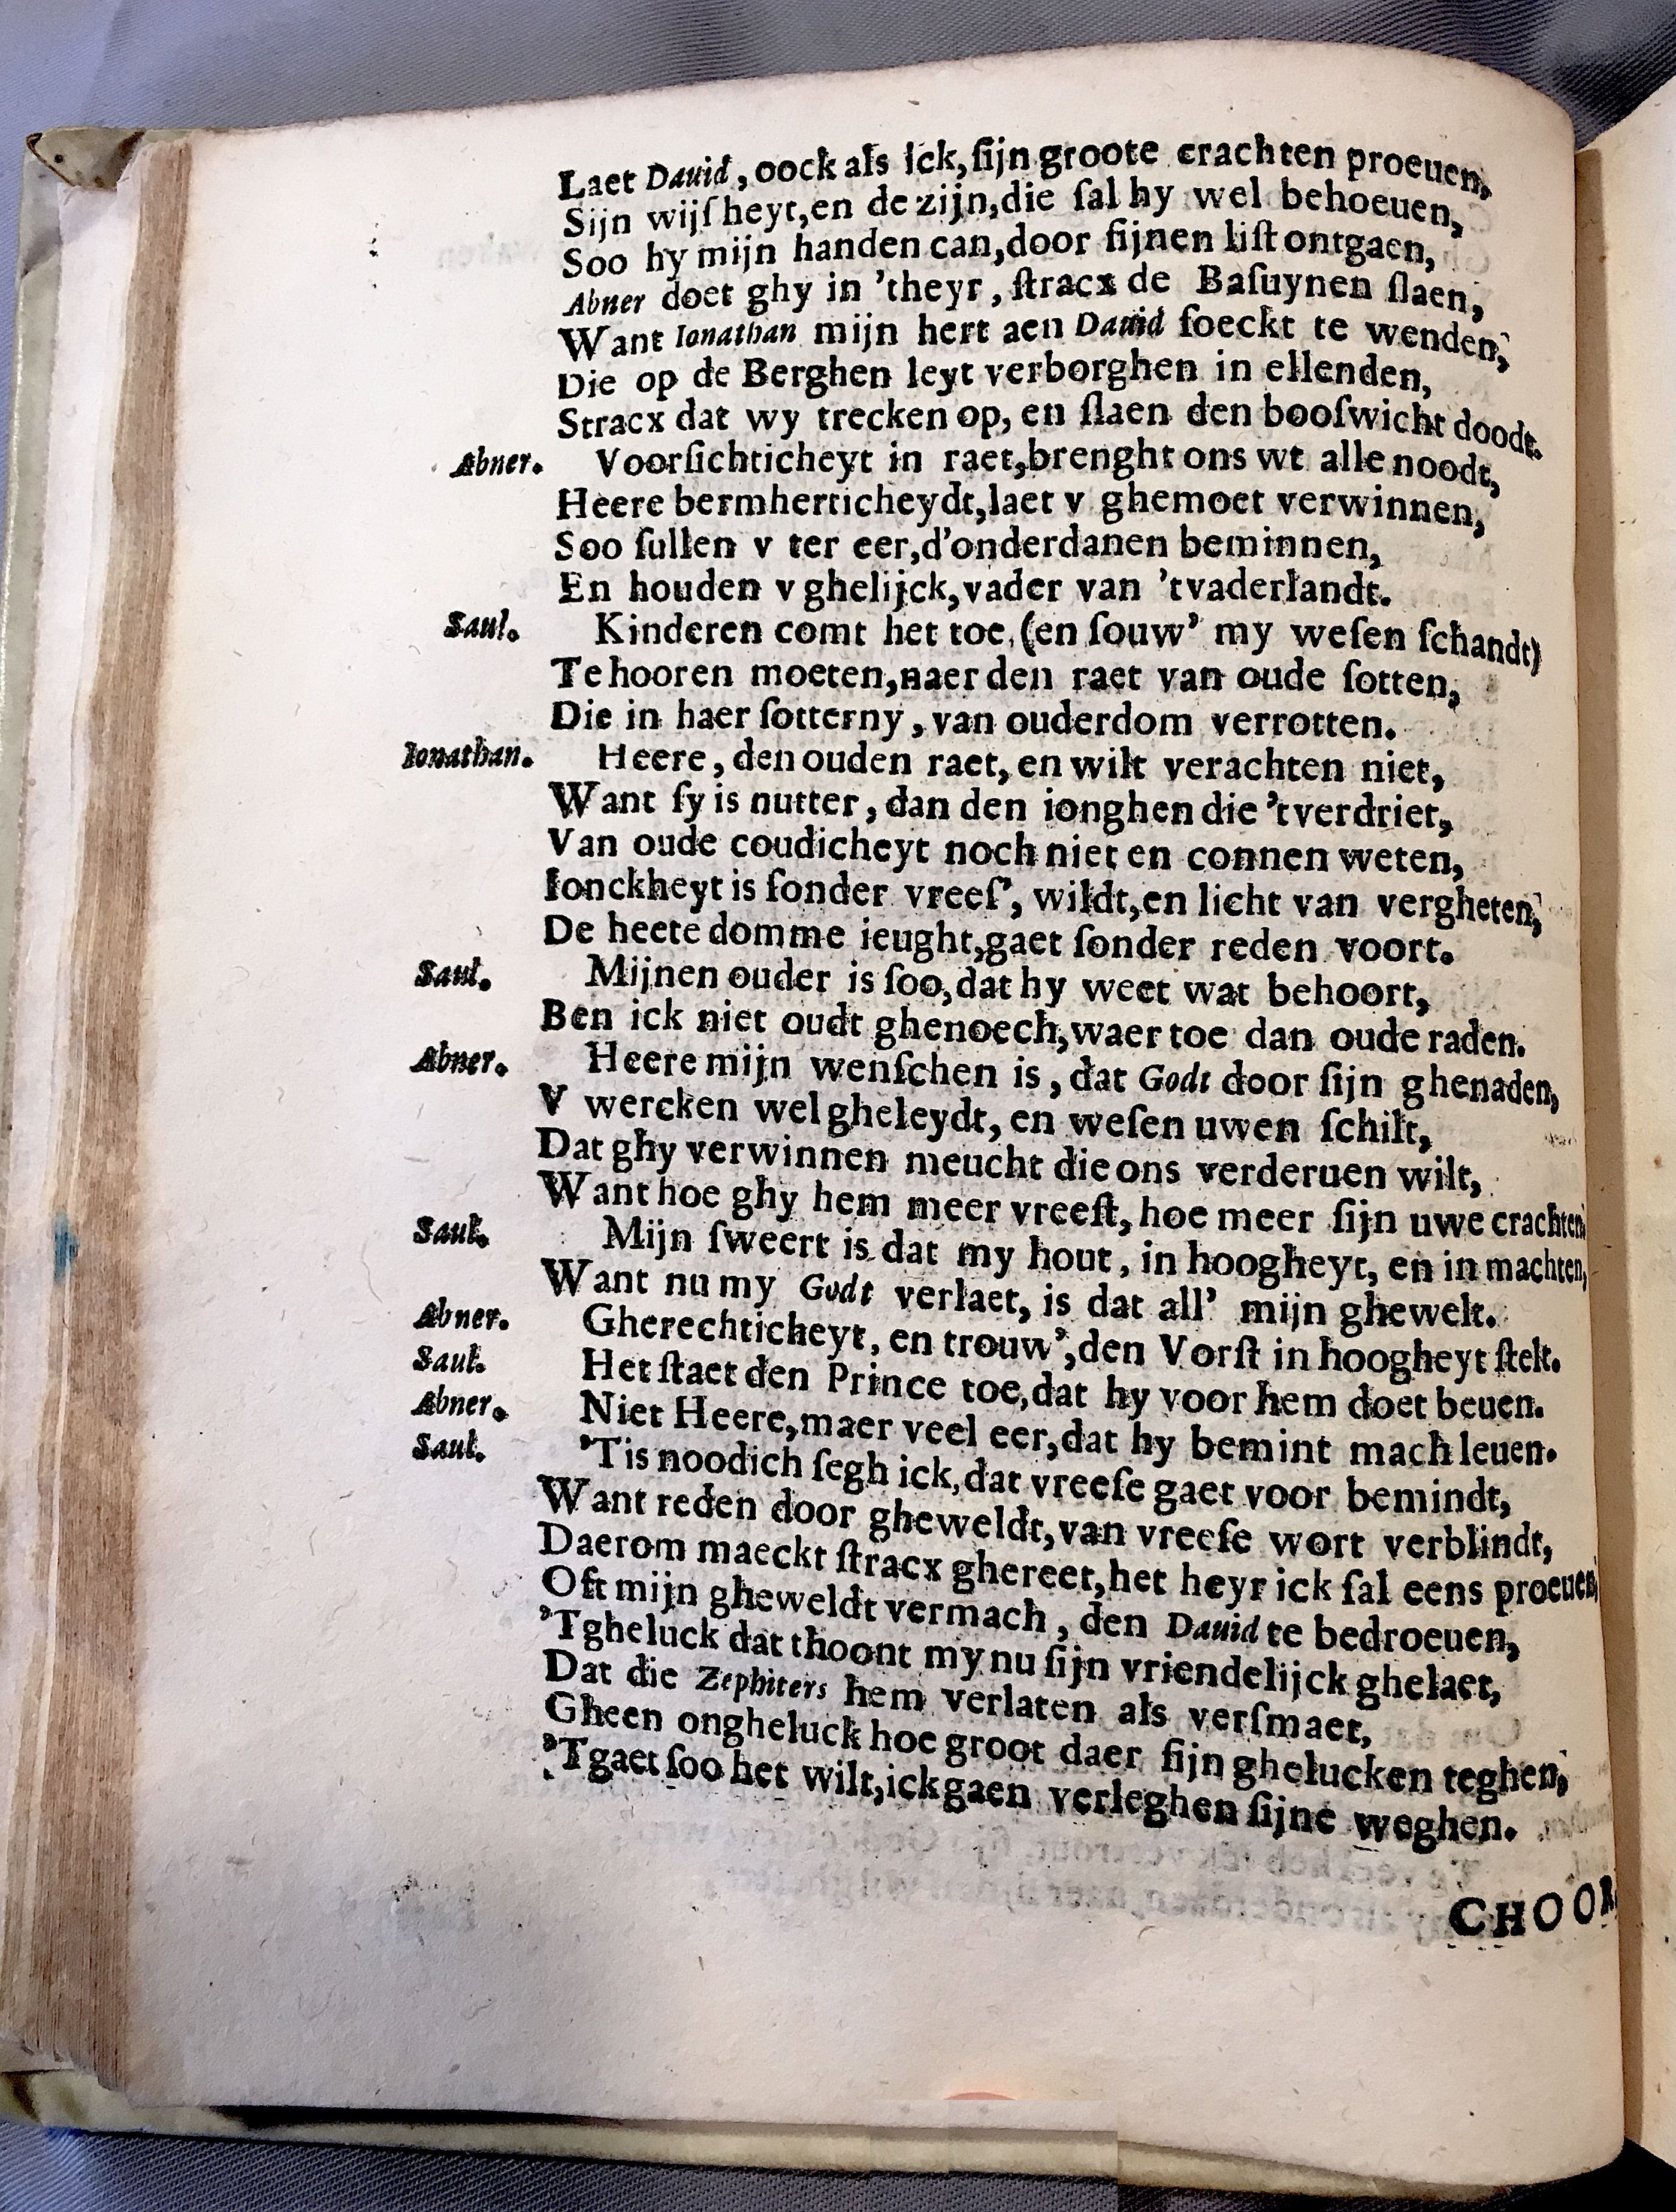 Laet Dauid, oock als ick, ſijn groote crachten proeuen,
Sijn wijſheyt, en de zijn, die ſal hy wel behoeuen,
Soo hy mijn handen can, door ſijnen liſt ontgaen,
Abner doet ghy in 'theyr, ſtracx de Baſuynen ſlaen,
Want Ionathan mijn hert aen Dauid ſoeckt te wenden,
Die op de Berghen leyt verborghen in ellenden,
Stracx dat wy trecken op, en ſlaen den booſwicht doodt.
Abner. Voorſichticheyt in raet, brenght ons wt alle noodt,
Heere bermherticheydt, laet v ghemoet verwinnen,
Soo ſullen v ter eer, d'onderdanen beminnen,
En houden v ghelijck, vader van 'tvaderlandt.
Saul. Kinderen comt het toe, (en ſouw' my weſen ſchandt)
Te hooren moeten, naer den raet van oude ſotten,
Die in haer ſotterny, van ouderdom verrotten.
Ionathan. Heere, den ouden raet, en wilt verachten niet,
Want ſy is nutter, dan den ionghen die 'tverdriet,
Van oude coudicheyt noch niet en connen weten,
Ionckheyt is ſonder vreeſ', wildt, en licht van vergheten,
De heete domme ieught, gaet ſonder reden voort.
Saul. Mijnen ouder is ſoo, dat hy weet wat behoort,
Ben ick niet oudt ghenoech, waer toe dan oude raden.
Abner. Heere mijn wenſchen is, dat Godt door ſijn ghenaden,
V wercken wel gheleydt, en weſen uwen ſchilt,
Dat ghy verwinnen meucht die ons verderuen wilt,
Want hoe ghy hem meer vreeſt, hoe meer ſijn uwe crachten,
Saul. Mijn ſweert is dat my hout, in hoogheyt, en in machten,
Want nu my Godt verlaet, is dat all' mijn ghewelt.
Abner. Gherechticheyt, en trouw', den Vorſt in hoogheyt ſtelt.
Saul. Het ſtaet den Prince toe, dat hy voor hem doet beuen.
Abner. Niet Heere, maer veel eer, dat hy bemint mach leuen.
Saul. 'Tis noodich ſegh ick, dat vreeſe gaet voor bemindt,
Want reden door gheweldt, van vreeſe wort verblindt,
Daerom maeckt ſtracx ghereet, het heyr ick ſal eens proeuen,
Oft mijn gheweldt vermach, den Dauid te bedroeuen,
'Tgheluck dat thoont my nu ſijn vriendelijck ghelaet,
Dat die Zephiters hem verlaten als verſmaet,
Gheen ongheluck hoe groot daer ſijn ghelucken teghen,
'Tgaet ſoo het wilt, ick gaen verleghen ſijne weghen.
CHOOR